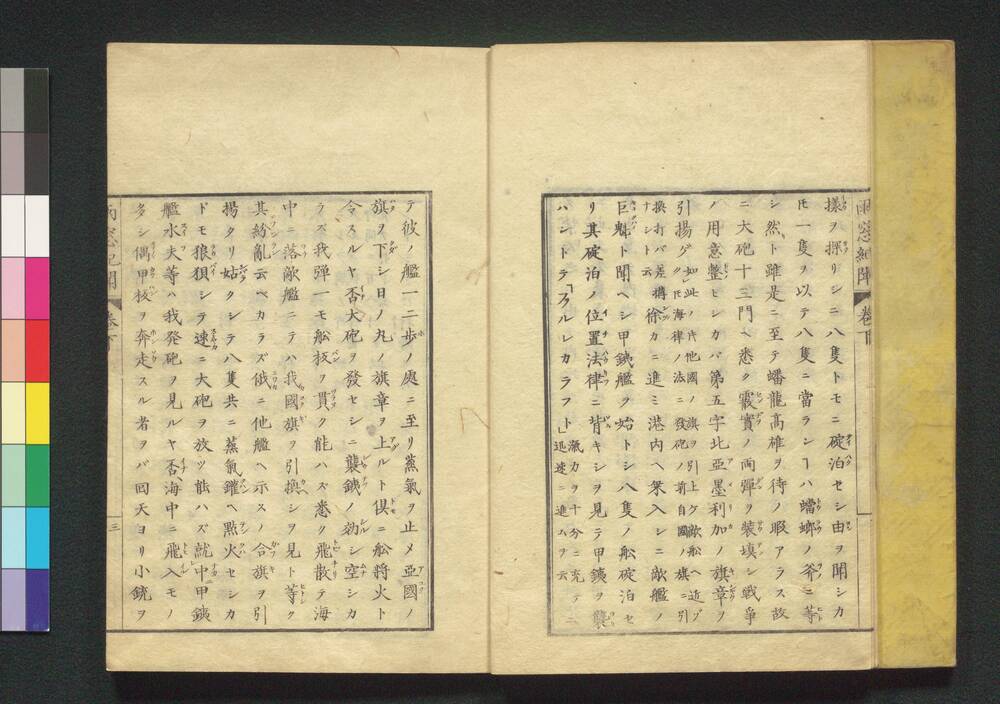 様ヲ探リシニ八隻トモニ碇泊セシ由ヲ聞シカ
𪜈一隻ヲ以テ八隻ニ當ランヿハ蟷螂ノ斧ニ等
シ然ト雖是ニ至テ蟠龍高雄ヲ待ノ暇アラス故
ニ大砲十三門ヘ悉ク霰實ノ両彈ヲ裝填シ戰爭
ノ用意整ヒシカバ第五字北亞墨利加ノ旗章ヲ
引揚ゲ
如此ノ片他國ノ旗ヲ引上ケ敵舩ヘ近ヅ
ク𪜈海律ノ法ニ發砲ノ前自國ノ旗ニ引
換ナシト云
徐カニ進ミ港内ヘ乘入シニ敵艦ノ
巨魁ト聞ヘシ甲鉄艦ヲ始トシ八隻ノ舩碇泊セ
リ其碇泊ノ位置法律ニ背キシヲ見テ甲鉄ヲ襲
ハントラ「フルレカラフト」
滊力ヲ十分ニ充テ
迅速ニ進ムヲ云
雨窓紀聞 卷下
テ彼ノ艦一二歩ノ處ニ至リ蒸氣ヲ止メ亞國ノ
旗ヲ下シ日ノ丸ノ旗章ヲ上ルト倶ニ舩將火ト
令スルヤ否大砲ヲ發セシニ襲鉄ノ効シ空シカ
ラズ我彈一モ舩板ヲ貫ク能ハズ悉ク飛散テ海
中ニ落敵艦ニテハ我國旗ヲ引換シヲ見ト等ク
其紛亂云ベカラズ俄ニ他艦ヘ示スノ合旗ヲ引
揚タリ姑クシテ八隻共ニ蒸氣鑵ヘ點火セシカ
ドモ狼狽シテ速ニ大砲ヲ放ツ能ハズ就中甲鉄
艦水夫等ハ我発砲ヲ見ルヤ否海中ニ飛入モノ
多シ偶甲板ヲ奔走スル者ヲバ回天ヨリ小銃ヲ
雨窓紀聞 卷下 三